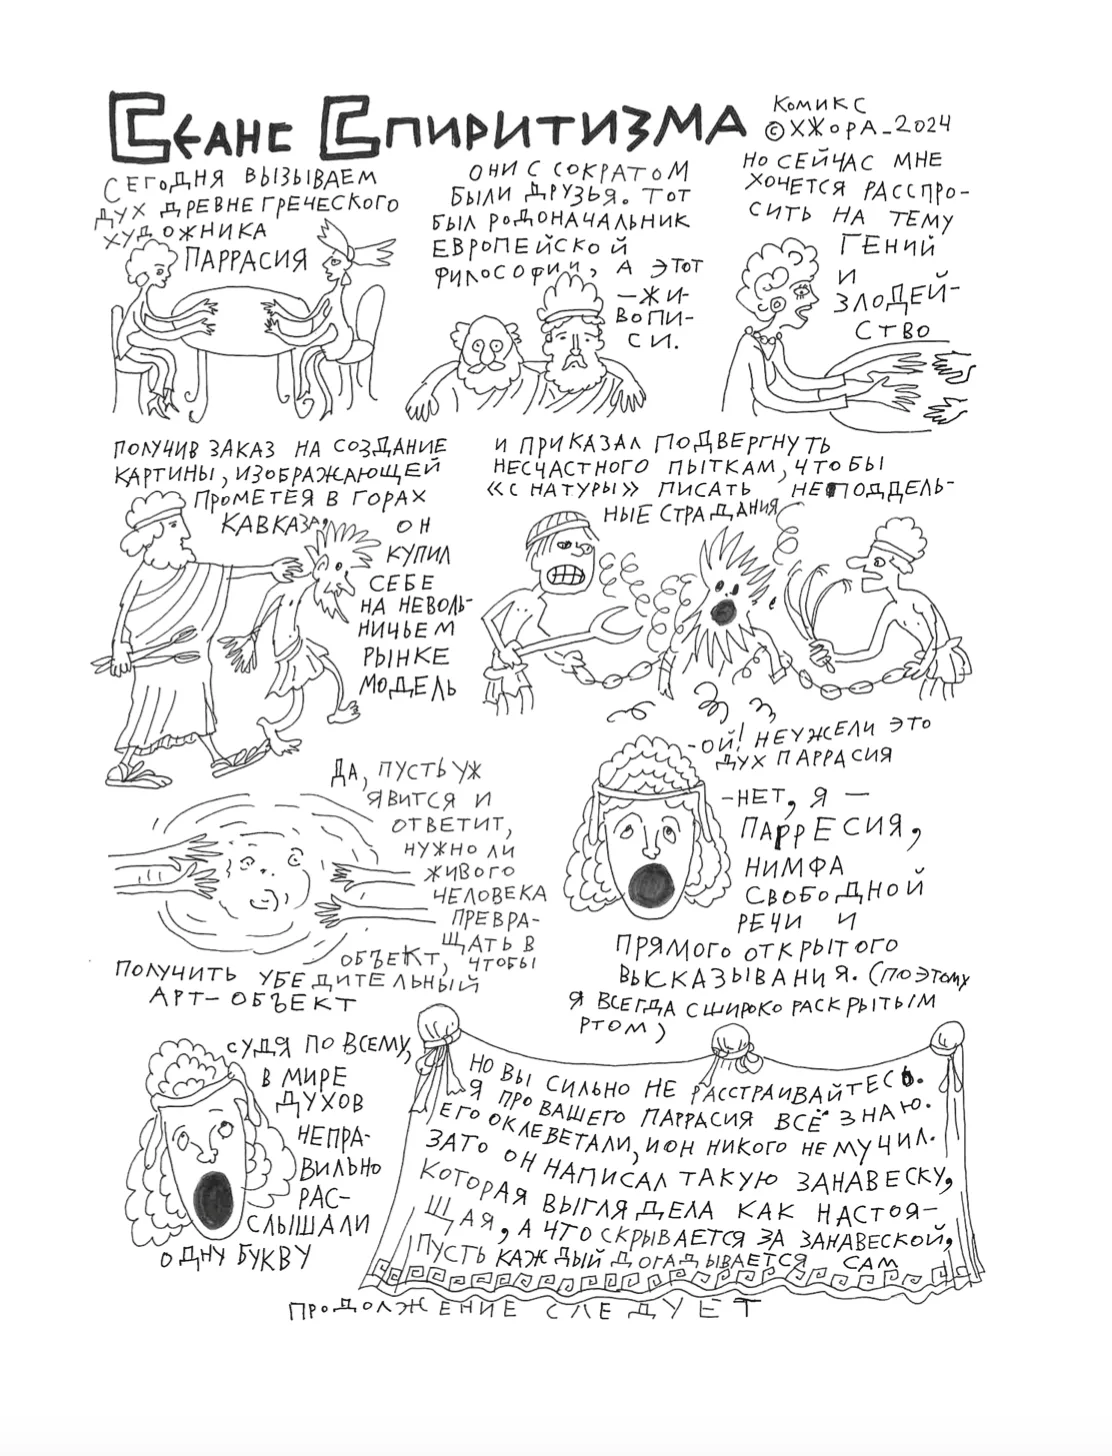 Сеанс Спиритизма
Комикс
© ХЖорА_2024
Сегодня вызываем
дух древнегреческого
художника
Паррасия
Они с Сократом
были друзья. Тот
был родоначальник
европейской
философии, а этот
— жи-
вопи-
си.
Но сейчас мне
хочется расспро-
сить на тему
гений
и
злодей-
ство
Получив заказ на создание
картины, изображающей
Прометея в горах
Кавказа, он
купил
себе
на неволь-
ничьем
рынке
модель
и приказал подвергнуть
несчастного пыткам, чтобы
«с натуры» писать неподдель-
ные страдания
Да, пусть уж
явится и
ответит,
нужно ли
живого
человека
превра-
щать в
объект, чтобы
получить убедительный
арт-объект
- Ой! Неужели это
дух Паррасия
- Нет, я —
Парресия,
нимфа
свободной
речи и
прямого открытого
высказывания. (Поэтому
я всегда с широко раскрытым
ртом)
Судя по всему,
в мире
духов
непра-
вильно
рас-
слышали
одну букву
Но вы сильно не расстраивайтесь.
Я про вашего Паррасия всё знаю.
Его оклеветали, и он никого не мучил.
Зато он написал такую занавеску,
которая выглядела как настоя-
щая, а что скрывается за занавеской,
пусть каждый догадывается сам
Продолжение следует